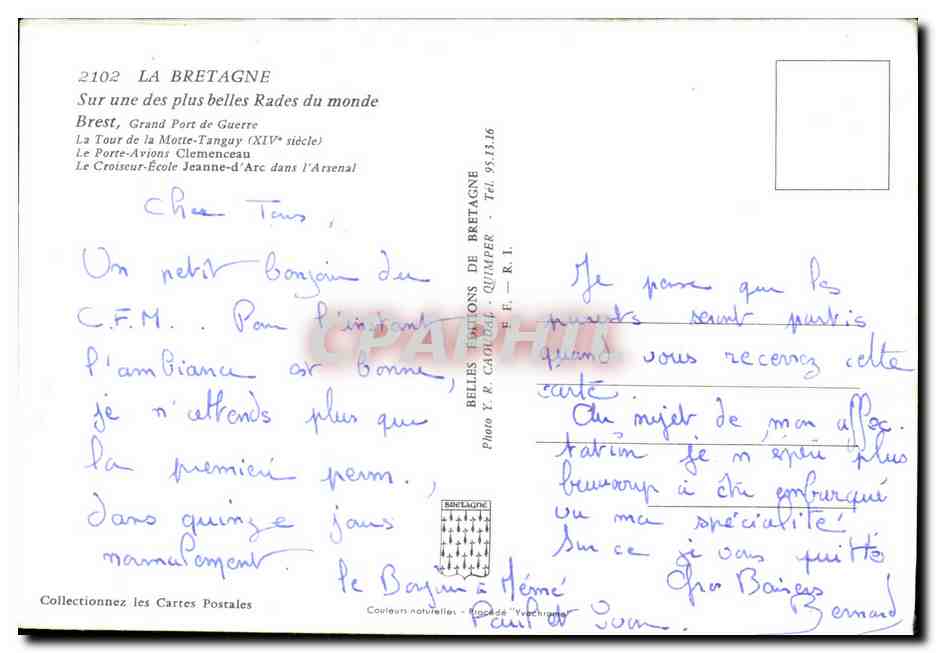 2102 LA BRETAGNE
Sur une des plus belles Rades du monde
Brest, Grand Port de Guerre
La Tour de la Motte-Tanguy (XIVe siècle)
Le Porte-Avions Clemenceau
Le Croiseur-École Jeanne-d'Arc dans l'Arsenal
Cher Tous,
Un petit bonjour du
C.F.M.. Pour l'instant
l'ambiance est bonne,
je n'attends plus que
la première perm.,
dans quinze jours
normalement.
le Bonjour à Mémé
Paul et Yvon.
Collectionnez les Cartes Postales
BELLES ÉDITIONS DE BRETAGNE
Photo Y. R. CAOUDAL - QUIMPER - Tél. 95.13.16
E. F. — R. I.
BRETAGNE
Couleurs naturelles - Procédé "Yvochrome"
CPAPHIL
Je pense que les
parents seront partis
quand vous recevrez cette
carte.
Au sujet de mon affec-
tation je n'espère plus
beaucoup à être embarqué
vu ma spécialité
Sur ce je vous quitte
Gros Baisers
Bernard